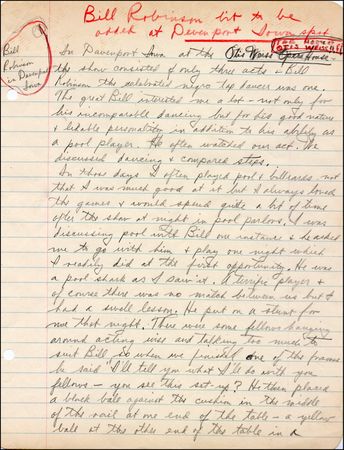 Bill Robinson bit to be
added at Davenport Iowa spot
Bill
Robinson
in Davenport
Iowa
In Davenport Iowa at the Opera House
the show consisted of only three acts & Bill
Robinson the celebrated negro tap dancer was one.
The great Bill interested me a lot - not only for
his incomparable dancing but for his good nature
& likable personality in addition to his ability as
a pool player. He often watched our act. We
discussed dancing & compared steps.
In those days I often played pool & billiards. not
that I was much good at it but I always loved
the games & would spend quite a bit of time
after the show at night in pool parlors. I was
discussing pool with Bill one instance & he asked
me to go with him & play one night which
I readily did at the first opportunity. He was
a pool shark as I saw it. A terrific player &
of course there was no match between us but I
had a swell lesson. He put on a stunt for
me that night. There were some fellows hanging
around acting wise and talking too much to
suit Bill, so when we finished one of the frames
he said "I'll tell you what I'll do with you
fellows - you see this set-up? He then placed
a black ball against the cushion in the middle
of the rail at one end of the table - a yellow
ball at the other end of the table in a